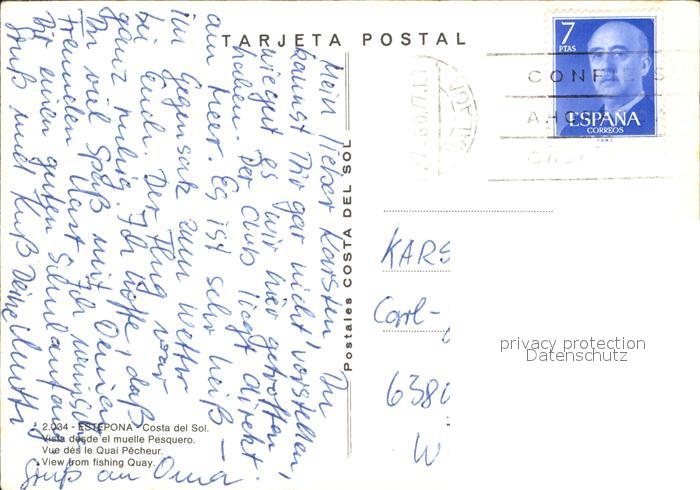 TARJETA POSTAL
7
PTAS
ESPAÑA
CORREOS
CONFIE S
Mein lieber Karsten! Du
kannst Dir gar nicht vorstellen,
wie gut es wir hier getroffen
haben. Der Club liegt direkt
am Meer. Es ist sehr heiß -
im Gegensatz zum Wetter
bei Euch. Der Flug war
ganz ruhig. Ich hoffe, daß
Du viel Spaß mit Deinen
Freunden hast. Ich wünsche
Dir einen guten Schulanfang
Gruß und Kuß Deine Mutti
Gruß an Oma
Postales COSTA DEL SOL
KARS
Carl-
638
W
privacy protection
Datenschutz
2.034 - ESTEPONA - Costa del Sol.
Vista desde el muelle Pesquero.
Vue dès le Quai Pêcheur.
View from fishing Quay.